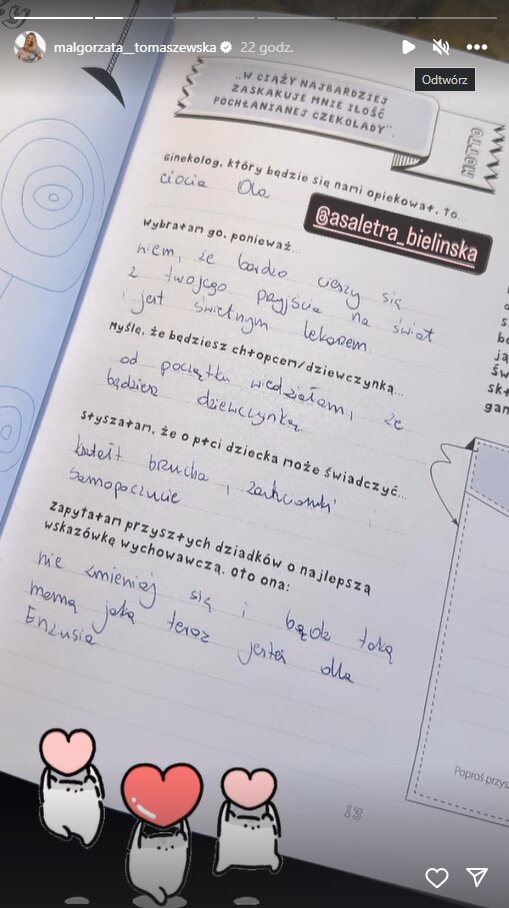 malgorzata__tomaszewska 22 godz.
Odtwórz
„W CIĄŻY NAJBARDZIEJ
ZASKAKUJE MNIE ILOŚĆ
POCHŁANIANEJ CZEKOLADY”.
MOTTO
Ginekolog, który będzie się nami opiekował, to...
ciocia Ola
@asaletra_bielinska
Wybrałam go, ponieważ...
wiem, że bardzo cieszy się
z twojego przyjścia na świat
i jest świetnym lekarzem
Myślę, że będziesz chłopcem/dziewczynką...
od początku wiedziałam, że
będziesz dziewczynką
Słyszałam, że o płci dziecka może świadczyć...
kształt brzucha, zachcianki i
samopoczucie
Zapytałam przyszłych dziadków o najlepszą
wskazówkę wychowawczą. Oto ona:
nie zmieniaj się i bądź taką
mamą jaką teraz jesteś dla
Enzusia
Poproś przys
13